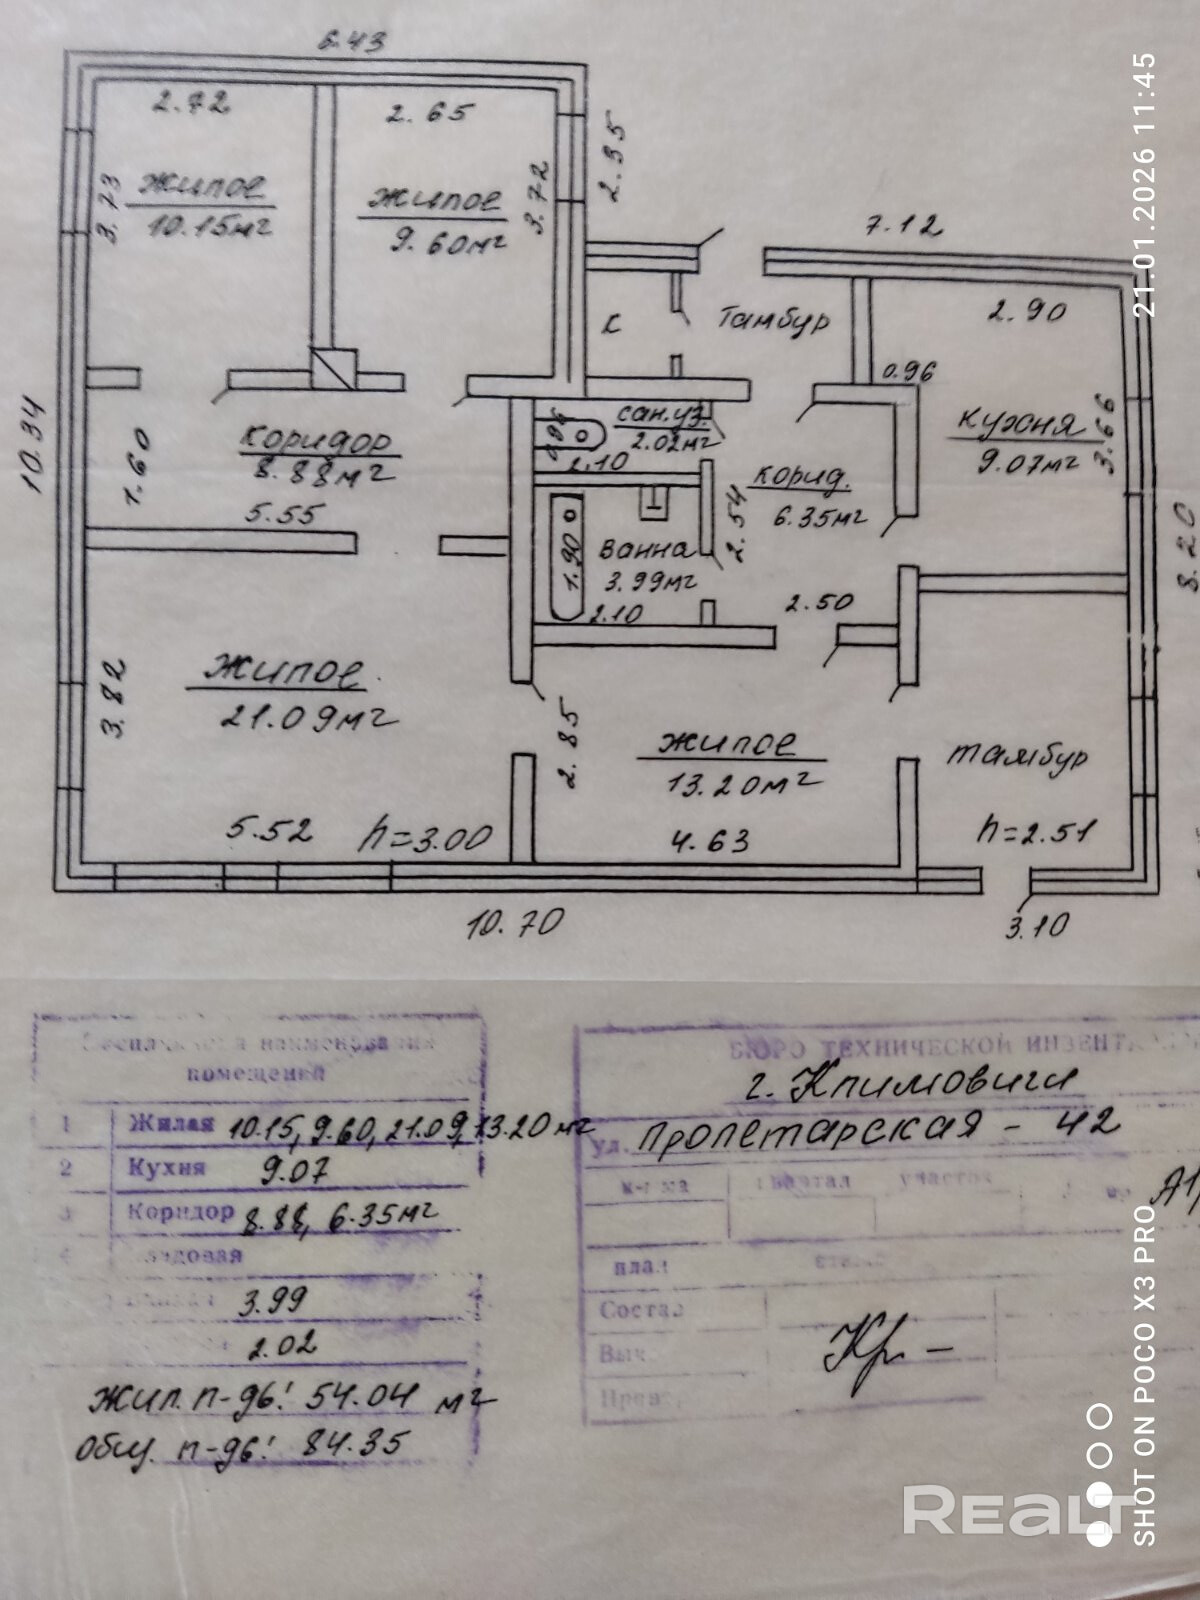 6.43
2.72
2.65
2.35
3.73
жилое
10.15м²
жилое
9.60м²
3.72
7.12
2.90
К
Тамбур
0.96
10.34
1.60
коридор
8.88м²
5.55
сан.уз.
2.02м²
2.10
корид.
6.35м²
2.54
кухня
9.07м²
3.66
8.20
1.90
Ванна
3.99м²
2.10
2.50
3.82
жилое
21.09м²
2.85
жилое
13.20м²
тамбур
5.52
h=3.00
4.63
h=2.51
10.70
3.10
наименования
помещений
1 Жилая 10.15, 9.60, 21.09, 13.20 м²
2 Кухня 9.07
3 Коридор 8.88, 6.35м²
3.99
2.02
жил. п-дь: 54.04 м²
общ. п-дь: 84.35
БЮРО ТЕХНИЧЕСКОЙ
г. Климовичи
ул. Пролетарская - 42
квартал участок
план
Кр -
21.01.2026 11:45
SHOT ON POCO X3 PRO
REALT